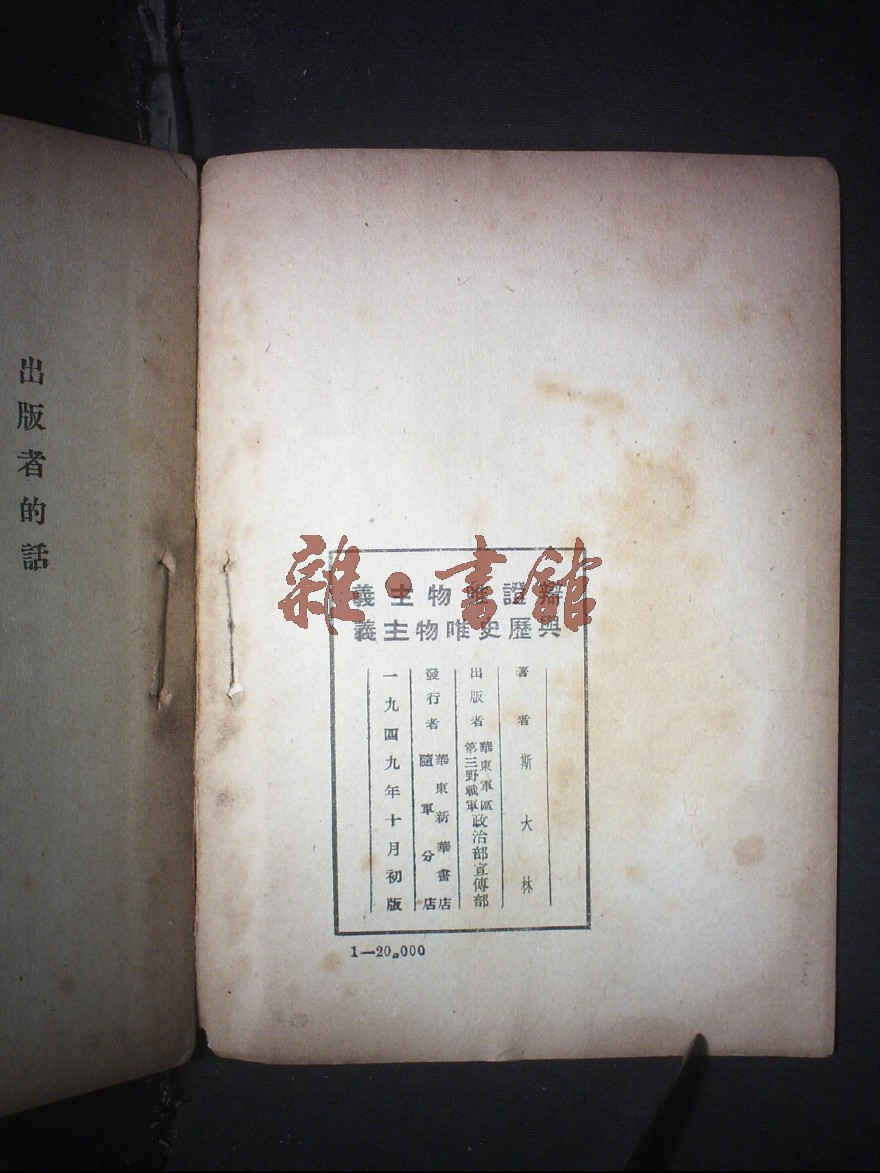 出版者的話
雜·書館
辯證唯物主義
與歷史唯物主義
著者 斯大林
出版者 華東軍區第三野戰軍政治部宣傳部
發行者 華東新華書店隨軍分店
一九四九年十月初版
1—20,000